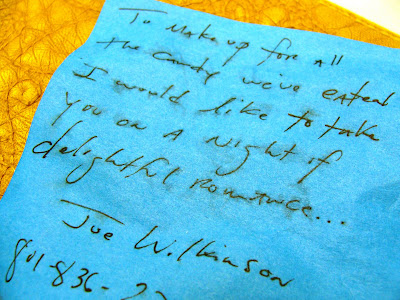 To Make up for All
the candy we've eaten
I would like to take
you on A Night of
delightful Romance...
Joe Wilkinson
801-836-